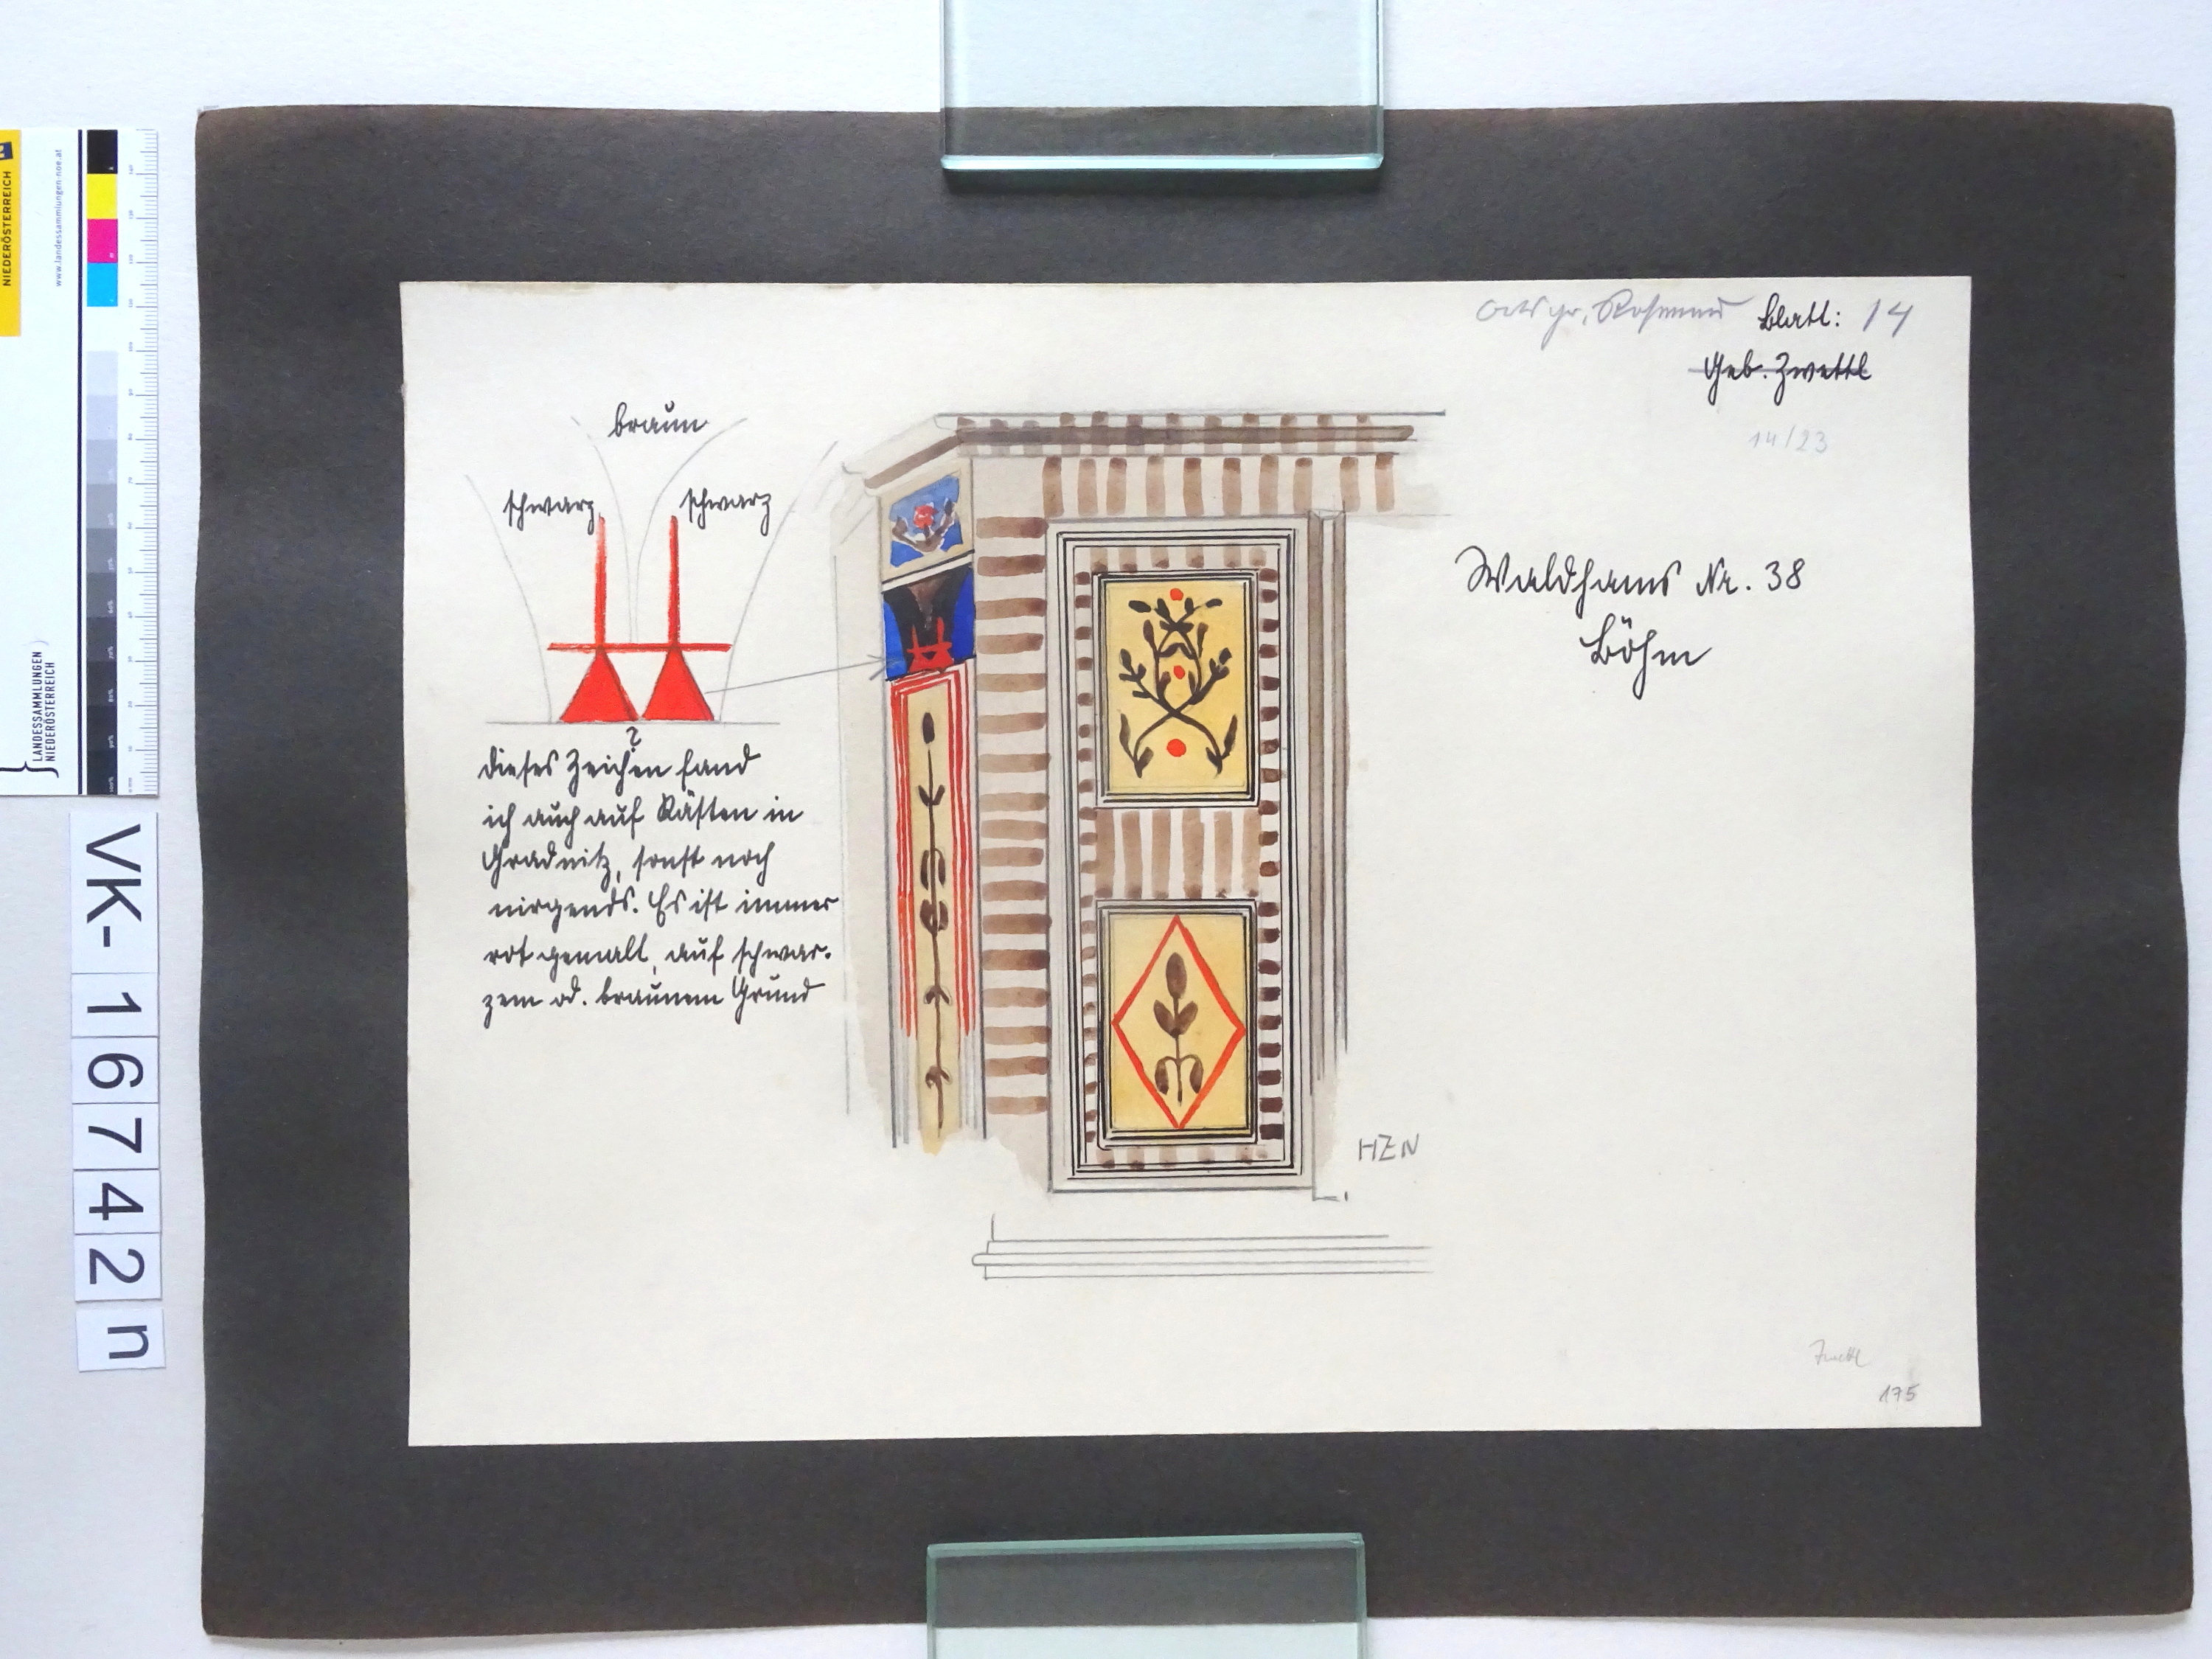 Ortsgr. Rosenau Blatt: 14
Geb. Zwettl
14/23
braun
schwarz schwarz
Waldhams Nr. 38
Böhm
?
dieses Zeichen fand
ich auch auf Kästen in
Gradnitz, sonst noch
nirgends. Es ist immer
rot gemalt, auf schwar-
zem od. braunem Grund
HZN
Zwettl
175
NIEDERÖSTERREICH
www.landessammlungen-noe.at
LANDESSAMMLUNGEN
NIEDERÖSTERREICH
VK-16742n